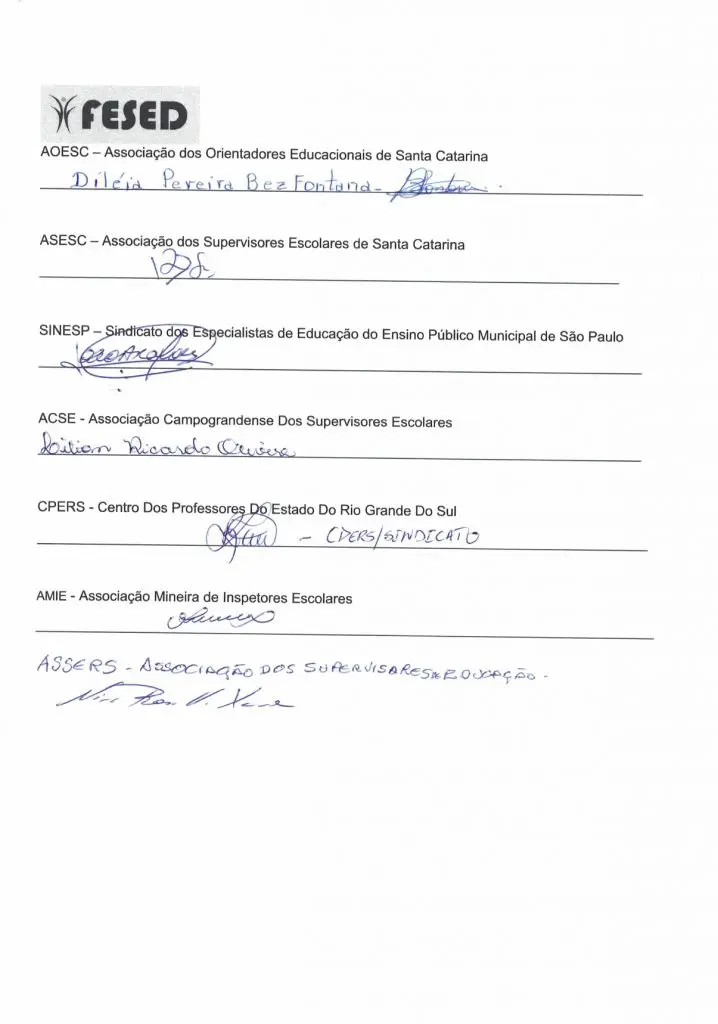 FESED
AOESC – Associação dos Orientadores Educacionais de Santa Catarina
Diléia Pereira Bez Fontana -
ASESC – Associação dos Supervisores Escolares de Santa Catarina
SINESP – Sindicato dos Especialistas de Educação do Ensino Público Municipal de São Paulo
ACSE - Associação Campograndense Dos Supervisores Escolares
Lilian Ricardo Oliveira
CPERS - Centro Dos Professores Do Estado Do Rio Grande Do Sul
- CPERS/SINDICATO
AMIE - Associação Mineira de Inspetores Escolares
ASSERS - ASSOCIAÇÃO DOS SUPERVISORES DE EDUCAÇÃO -